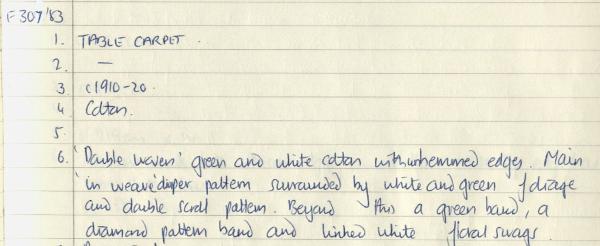 F 307 '83
1. TABLE CARPET.
2. —
3. c1910-20.
4. Cotton.
5.
6. 'Double woven' green and white cotton with unhemmed edges. Main
'in weave' diaper pattern surrounded by white and green foliage
and double scroll pattern. Beyond this a green band, a
diamond pattern band and linked white floral swags.